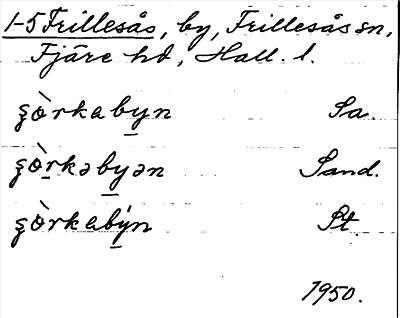 1-5 Frillesås, by, Frillesås sn,
Fjäre hd, Hall. l.
ʂòrkabyn Sa.
ʂòrkəbyən Sand.
ʂòrkabýn St.
1950.